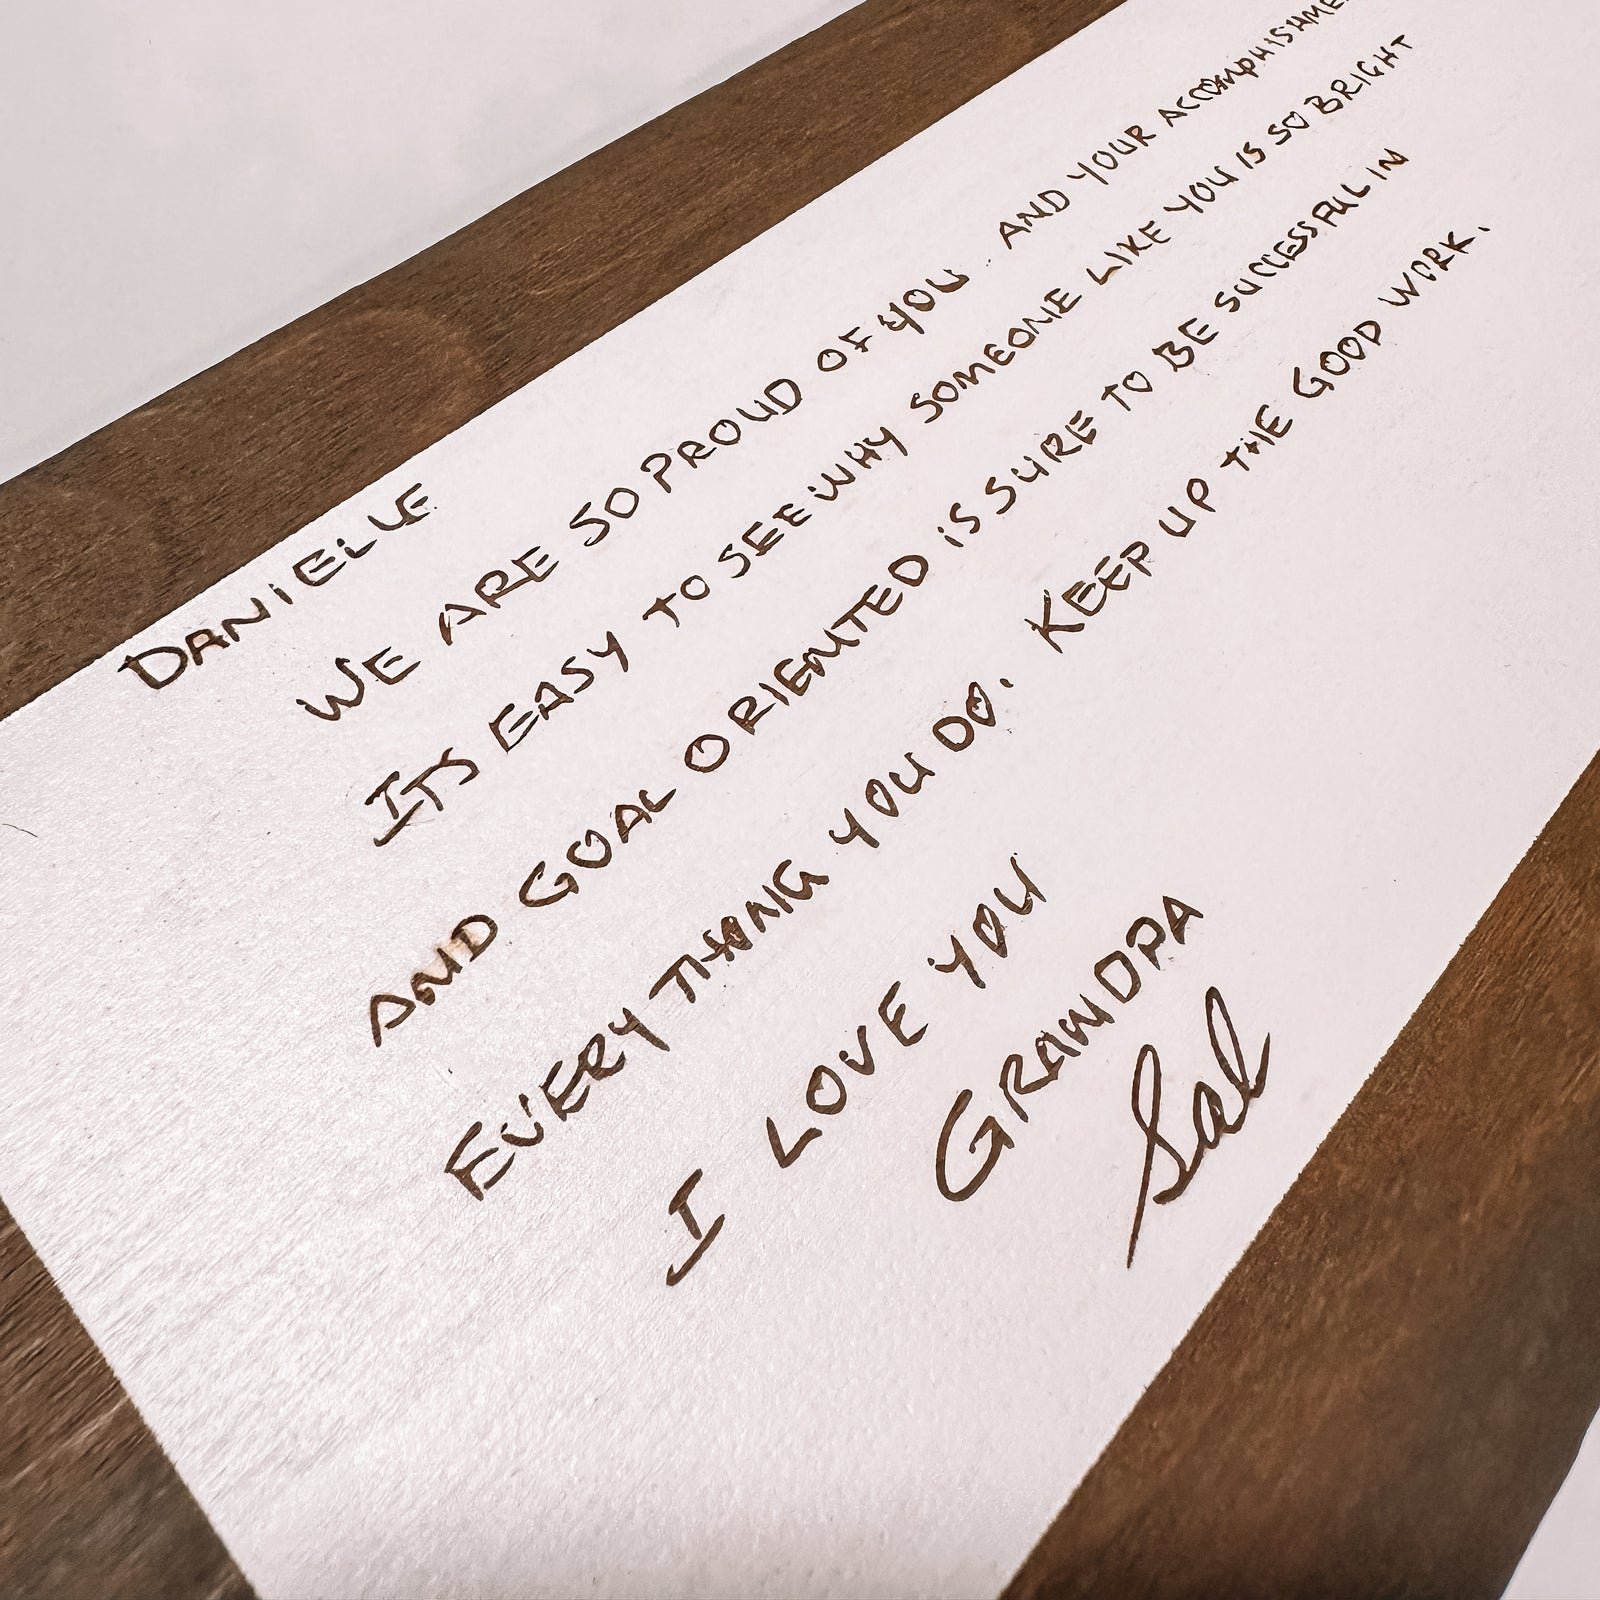 DANIELLE
WE ARE SO PROUD OF YOU. AND YOUR ACCOMPLISHME
ITS EASY TO SEE WHY SOMEONE LIKE YOU IS SO BRIGHT
AND GOAL ORIENTED IS SURE TO BE SUCCESSFUL IN
EVERY THING YOU DO. KEEP UP THE GOOD WORK.
I LOVE YOU
GRANDPA
Sal